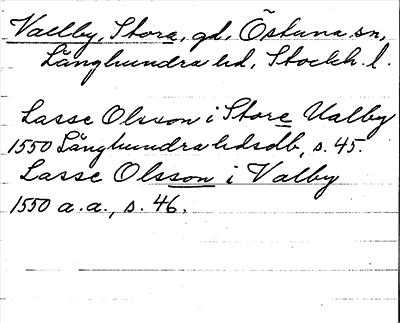 Vallby, Stora, gd, Östuna sn,
Långhundra hd, Stockh. l.
Lasse Olsson i Store Ualby
1550 Långhundra hdsdb, s. 45.
Lasse Olsson i Valby
1550 a.a., s. 46.